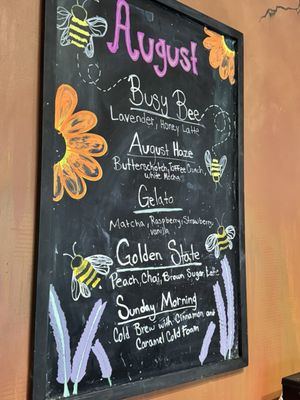 August
Busy Bee
Lavender, Honey Latte
August Haze
Butterscotch, Toffee Crunch,
White Mocha
Gelato
Matcha, Raspberry, Strawberry,
Vanilla
Golden State
Peach, Chai, Brown Sugar Latte
Sunday Morning
Cold Brew with Cinnamon and
Caramel Cold Foam